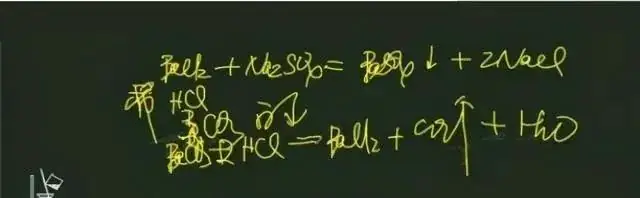 BaCl₂ + Na₂SO₄ = BaSO₄ ↓ + 2NaCl
HCl
BaCO₃ + 2HCl = BaCl₂ + CO₂↑ + H₂O